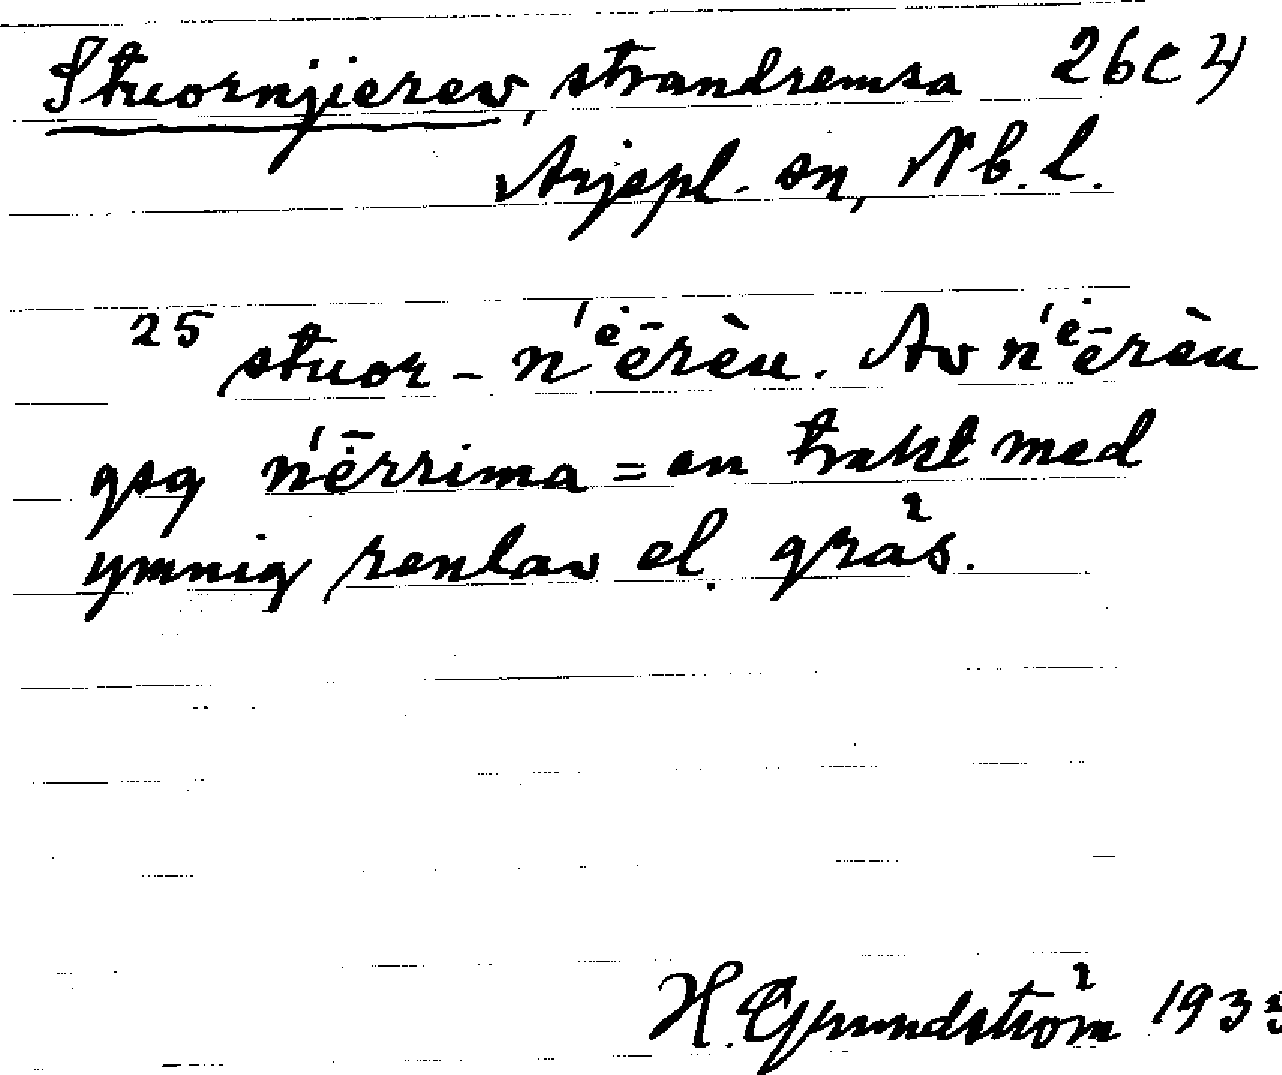 Stuornjierev, strandremsa 26C4
Arjepl. sn, Nb.l.
25 stuor-n'ėērèu. Av n'ėērèu
gsg n'ērrima = en trakt med
ymnig renlav el. gräs.
H. Grundström 1933